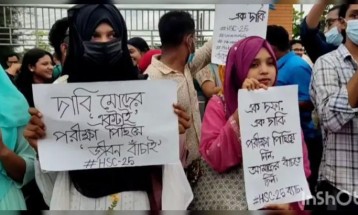 এক দাবি
#HSC-25
দাবি মোদের
'একটাই'
পরীক্ষা পিছিয়ে
'জীবন বাঁচাই'
#HSC-25
এক দফা,
এক দাবি
পরীক্ষা পিছিয়ে
দিন,
আমাদের বাঁচতে
দিন।
#HSC 25